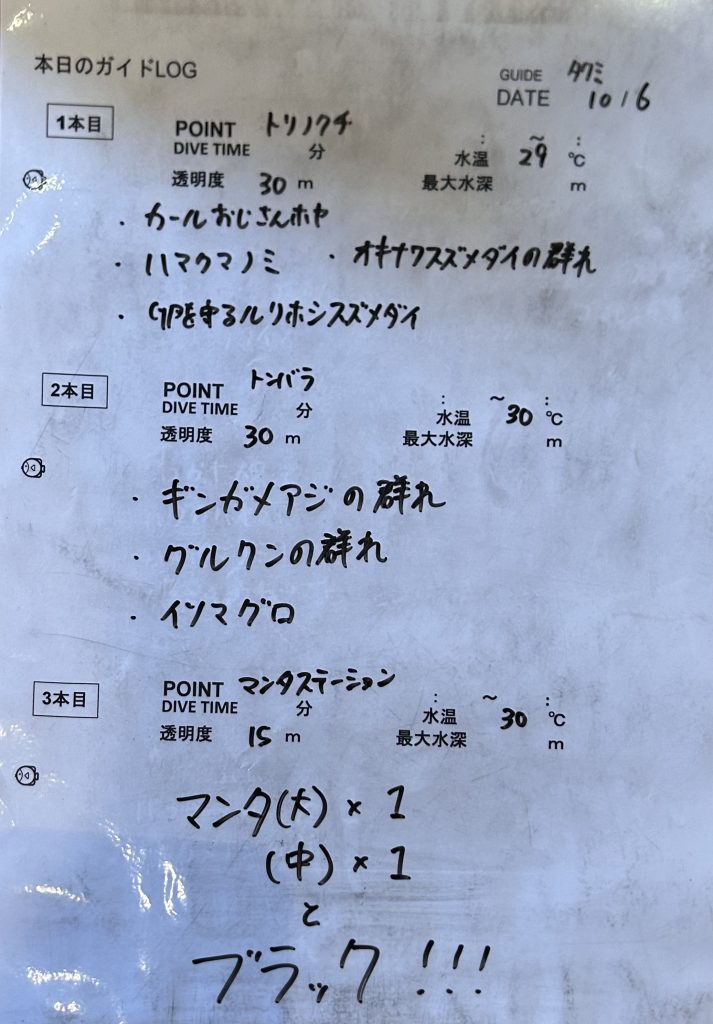 本日のガイドLOG
GUIDE タクミ
DATE 10/6
1本目
POINT トリノクチ
DIVE TIME 分 : ~ :
透明度 30 m 水温 29 ℃
最大水深 m
・カールおじさんホヤ
・ハマクマノミ ・オキナワスズメダイの群れ
・を守るルリホシスズメダイ
2本目
POINT トンバラ
DIVE TIME 分 : ~ :
透明度 30 m 水温 30 ℃
最大水深 m
・ギンガメアジの群れ
・グルクンの群れ
・イソマグロ
3本目
POINT マンタステーション
DIVE TIME 分 : ~ :
透明度 15 m 水温 30 ℃
最大水深 m
マンタ(大)×1
(中)×1
と
ブラック!!!